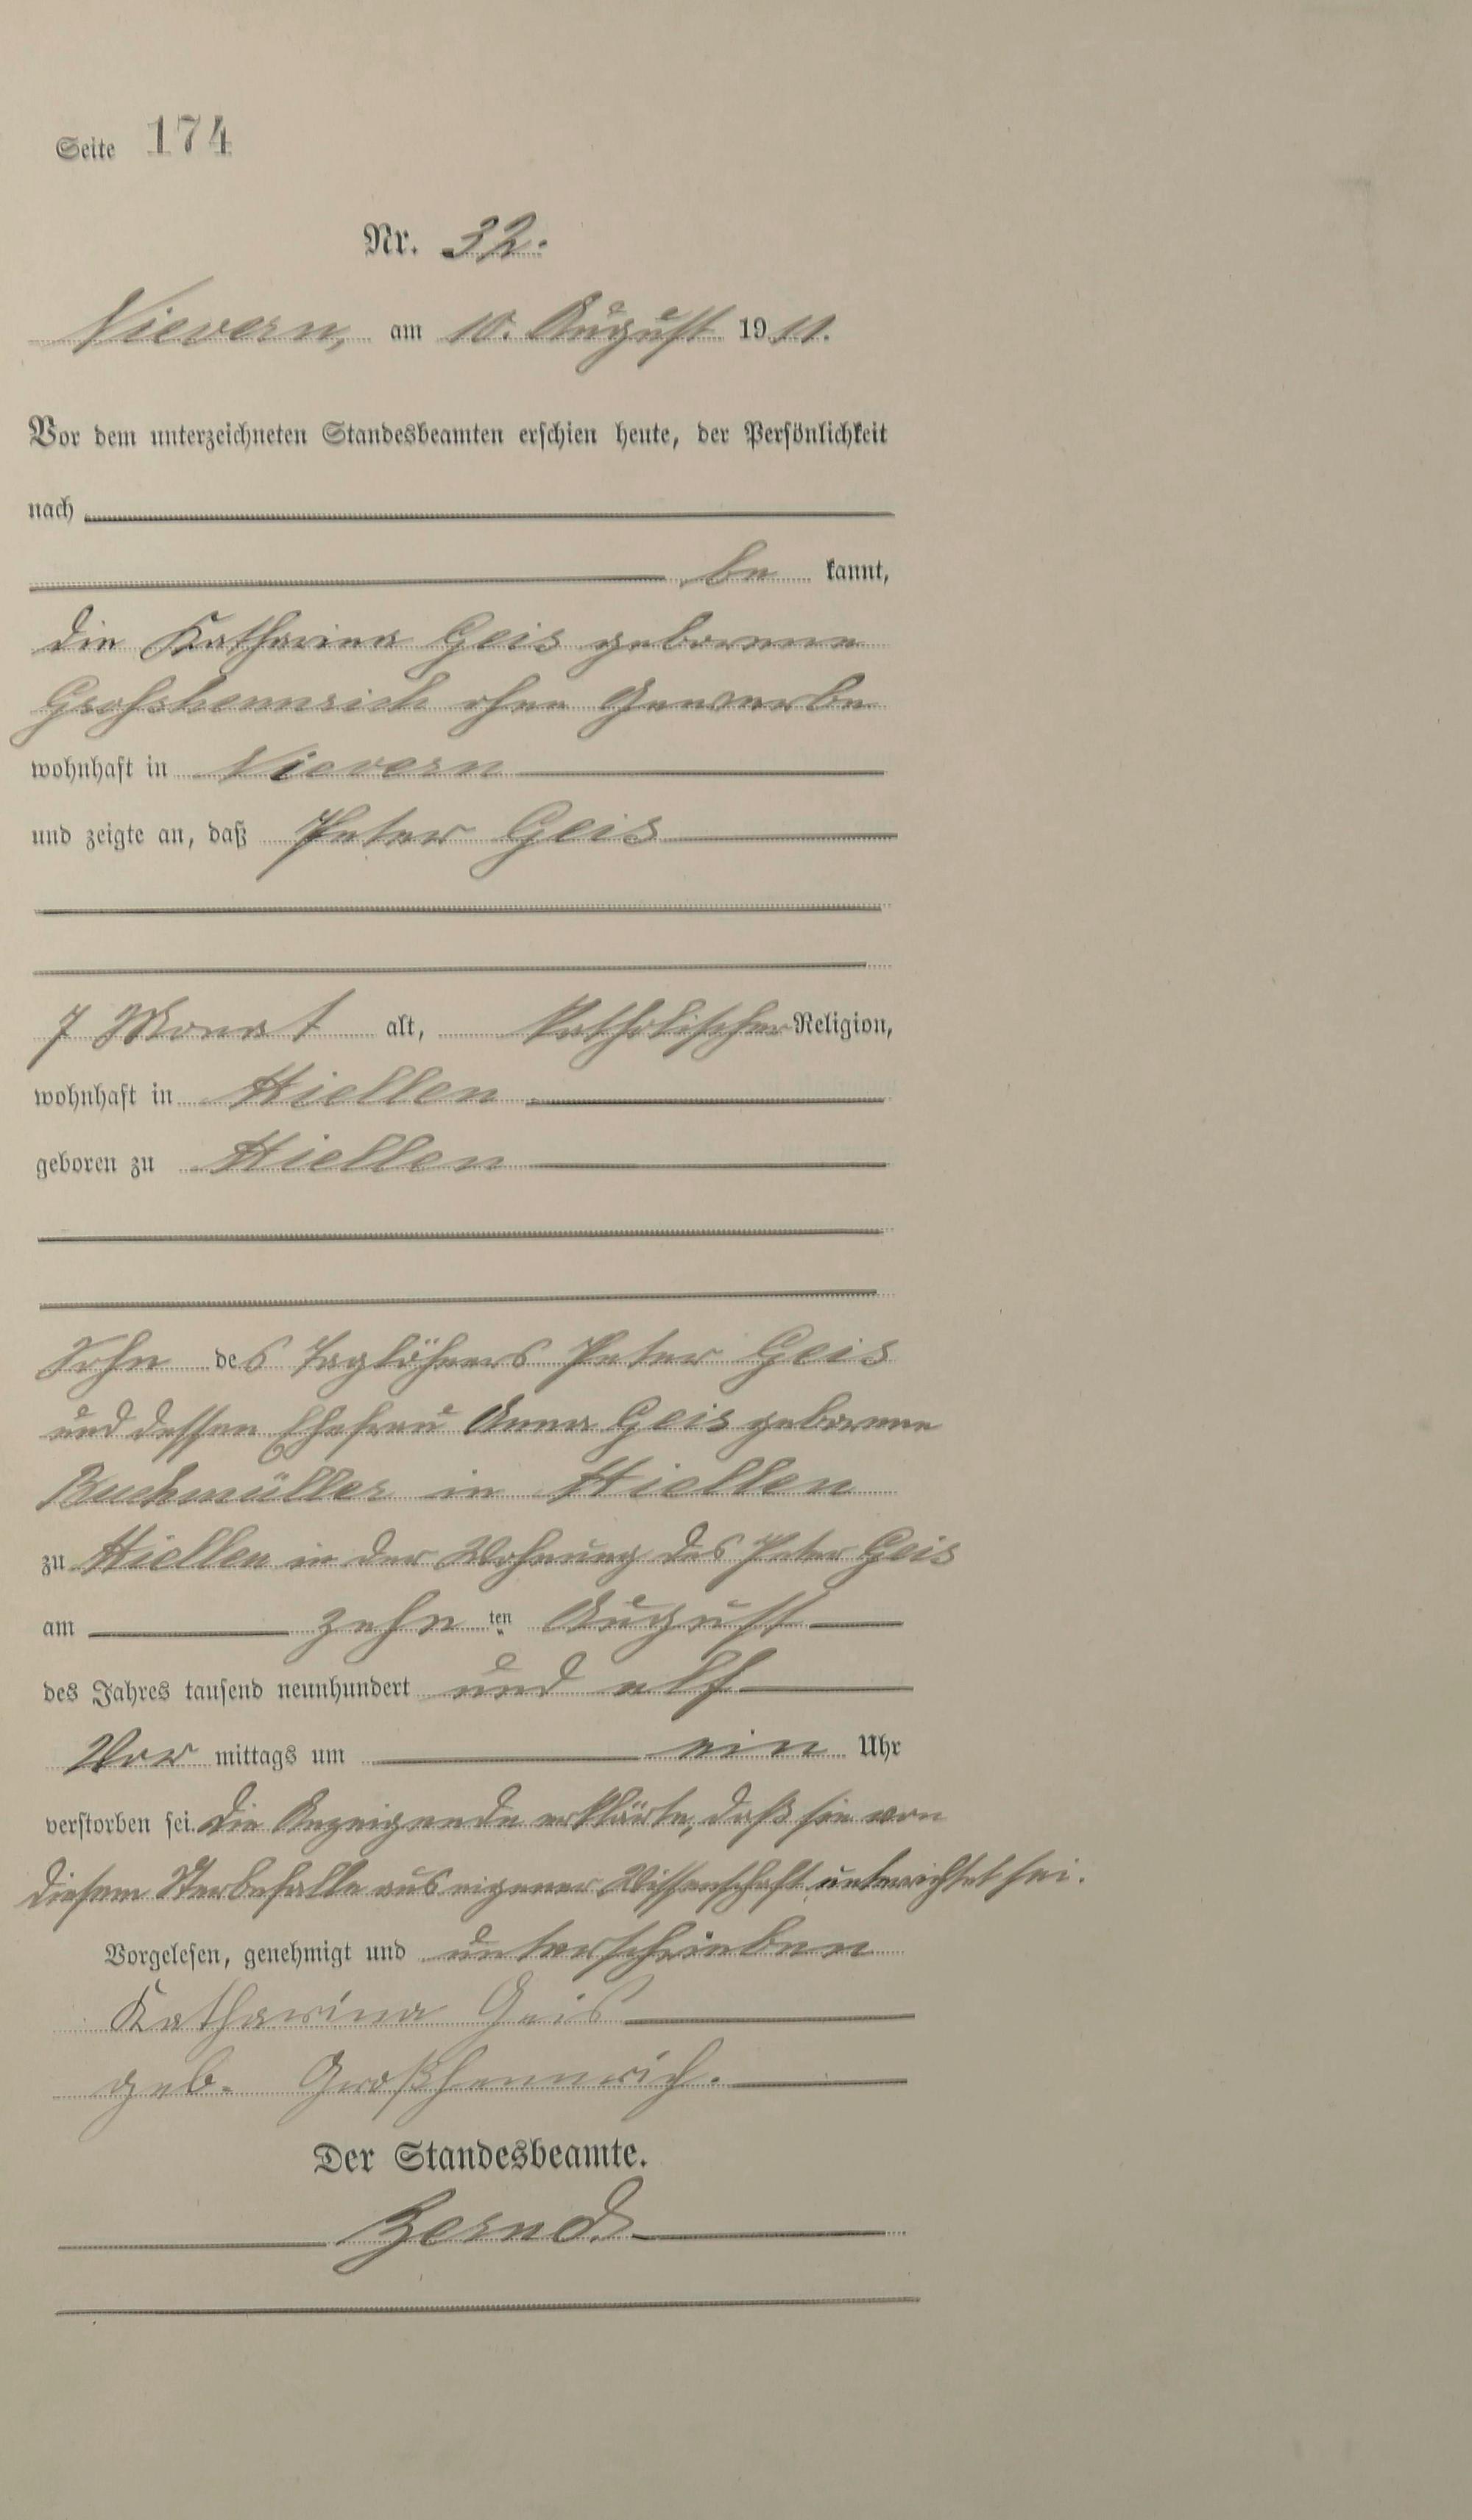 Seite 174
Nr. 32.
Nievern, am 10. August 1911.
Vor dem unterzeichneten Standesbeamten erschien heute, der Persönlichkeit
nach
be kannt,
die Katharina Geis geborene
Großhennrich ohne Gewerbe
wohnhaft in Nievern
und zeigte an, daß Peter Geis
7 Monat alt, katholischer Religion,
wohnhaft in Miellen
geboren zu Miellen
Sohn des Taglöhners Peter Geis
und dessen Ehefrau Anna Geis geborene
Buchmüller in Miellen
zu Miellen in der Wohnung des Peter Geis
am zehn ten August
des Jahres tausend neunhundert und elf
Vor mittags um ein Uhr
verstorben sei. Die Anzeigende erklärte, daß sie von
diesem Sterbefalle aus eigener Wissenschaft unterrichtet sei.
Vorgelesen, genehmigt und unterschrieben
Katharina Geis
geb. Großhennrich.
Der Standesbeamte.